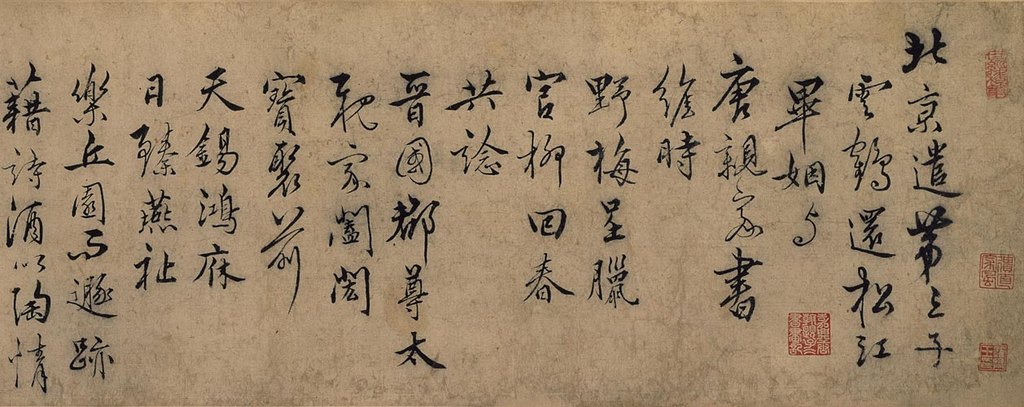 北京遣第三子
雲鶴還松江
畢姻与
唐親家書
維時
野梅呈臘
官柳回春
共諗
晉國都尊太
親家闔閎
寶聚以前
天錫鴻庥
日臻燕祉
樂丘園而遯跡
藉詩酒以陶情